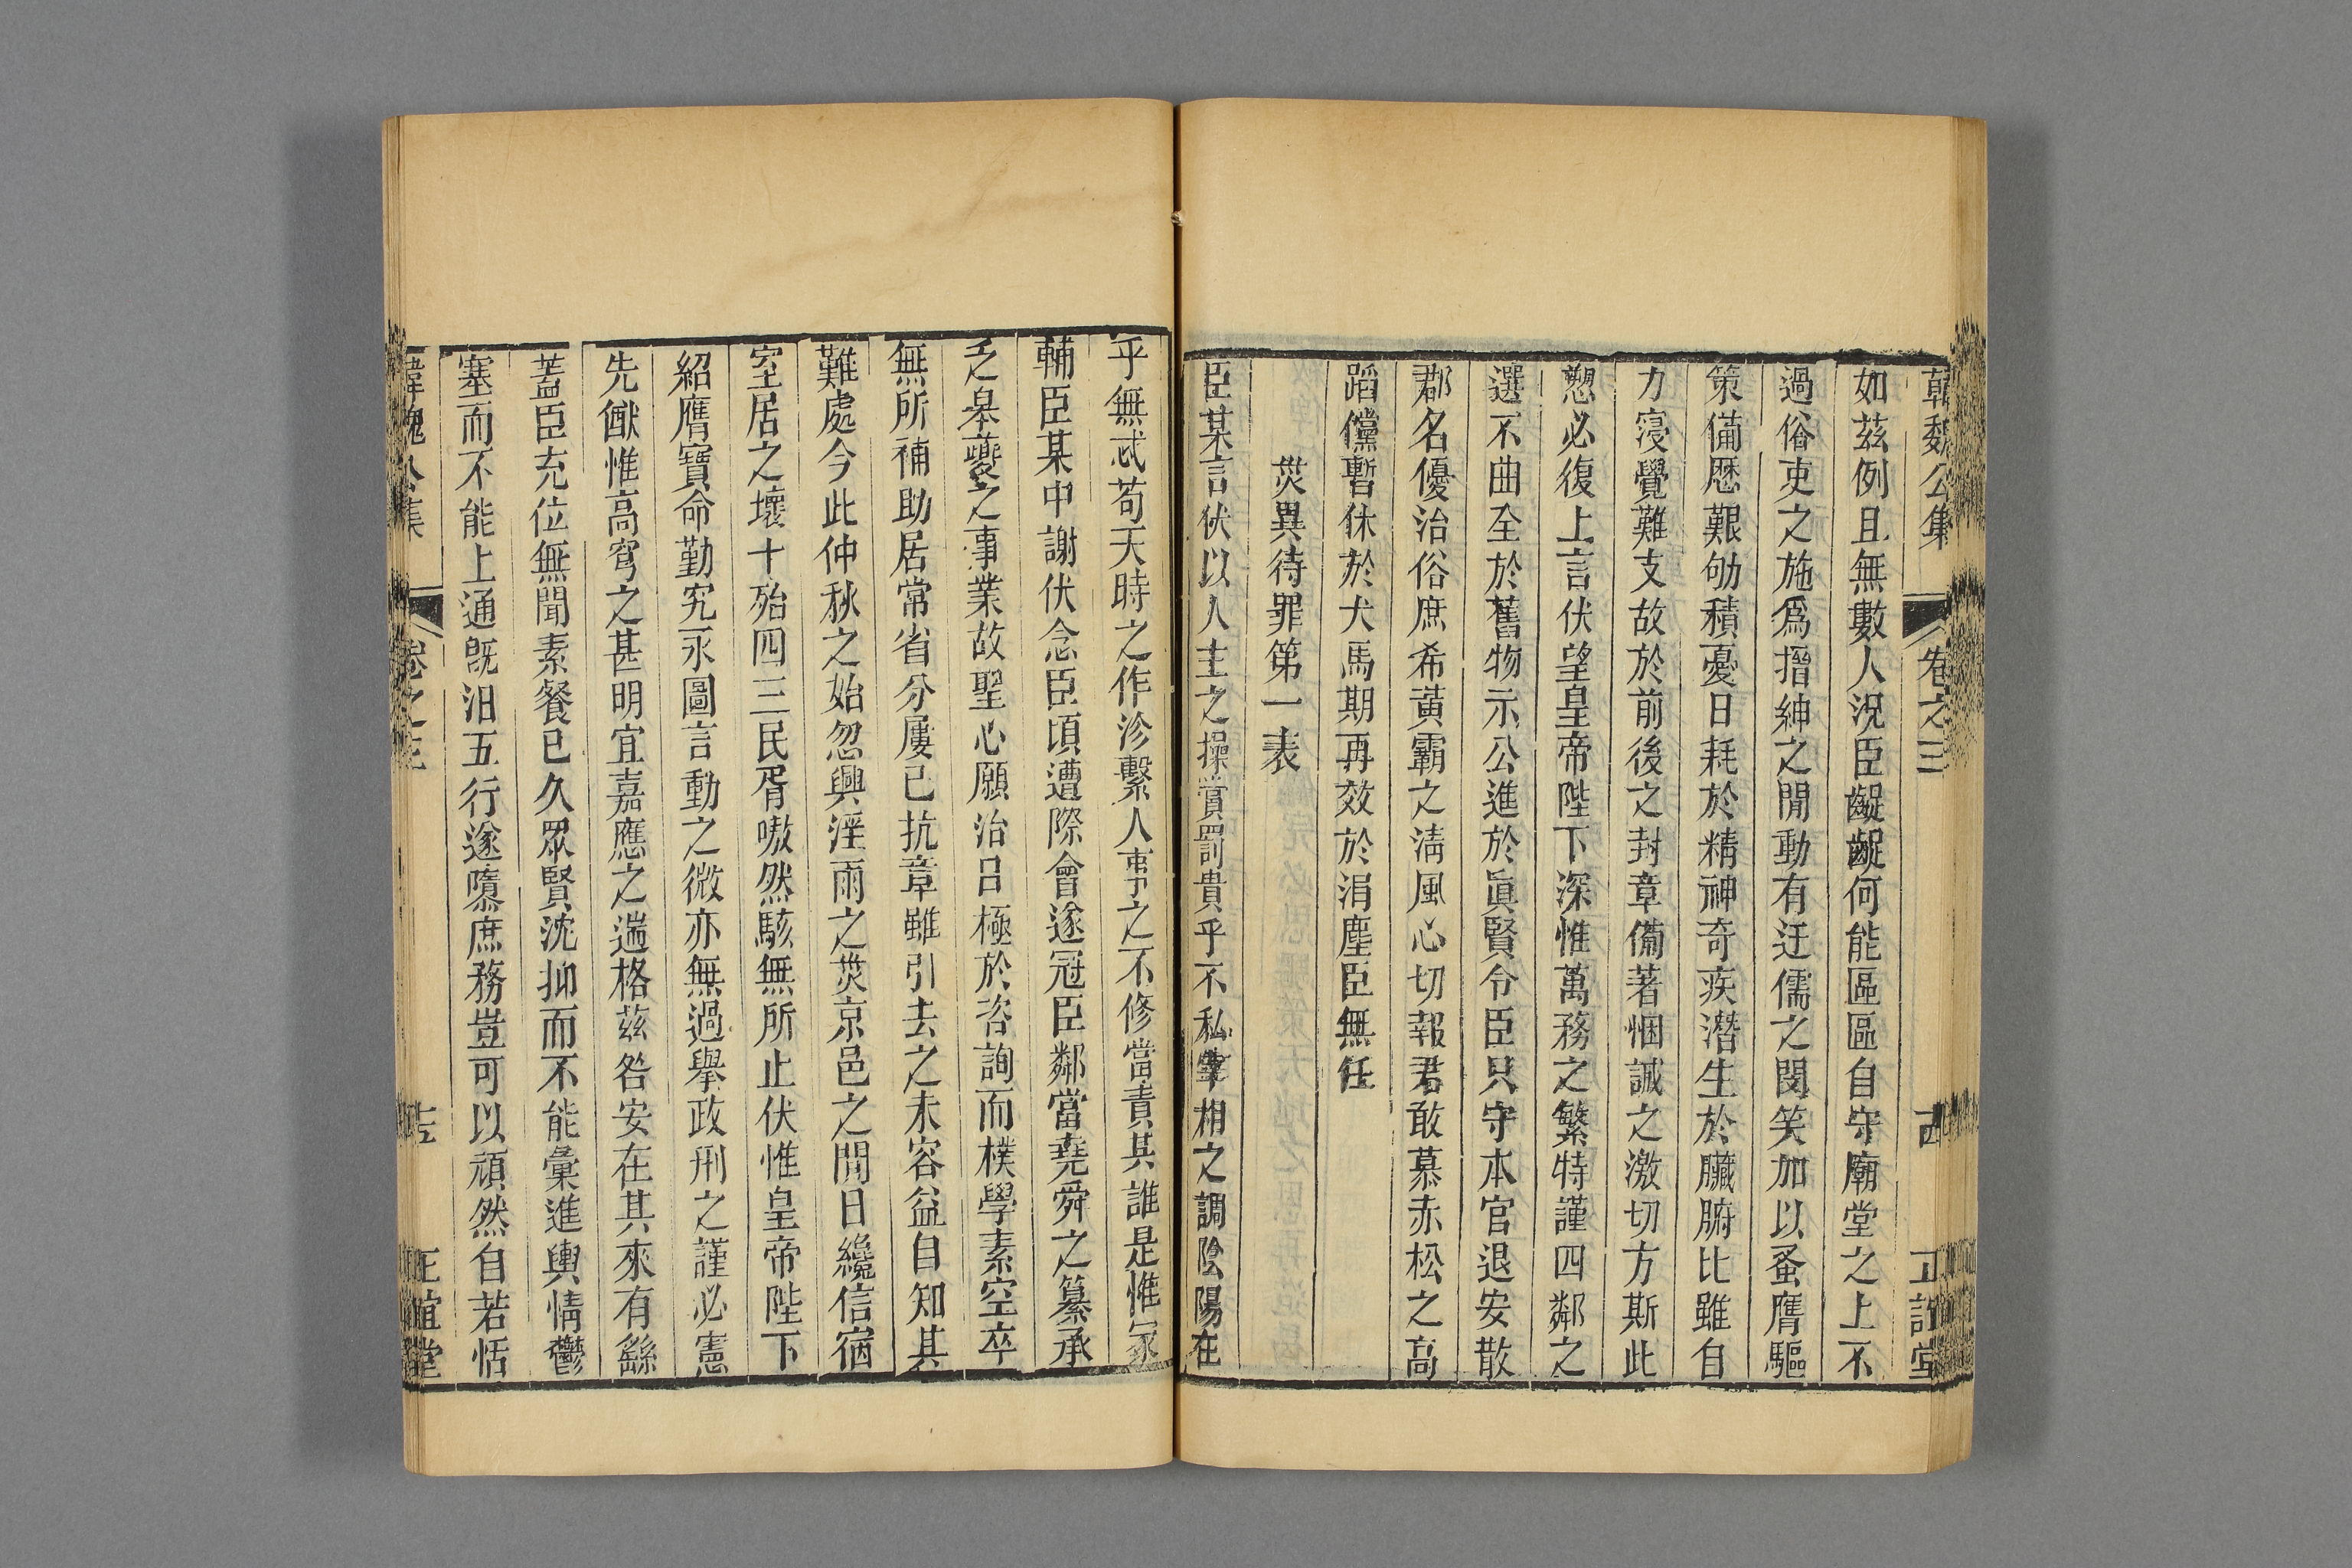 韓魏公集 卷之三 正誼堂
如茲例且無數人況臣齷齪何能區區自守廟堂之上不
過俗吏之施爲搢紳之閒動有迂儒之閔笑加以蚤膺驅
策備歷艱劬積憂日耗於精神奇疾潛生於臟腑比雖自
力寖覺難支故於前後之封章備著悃誠之激切方斯此
懇必復上言伏望皇帝陛下深惟萬務之繁特謹四鄰之
選不曲全於舊物示公進於眞賢令臣只守本官退安散
郡名優治俗庶希黃霸之淸風心切報君敢慕赤松之高
蹈儻暫休於犬馬期再效於涓塵臣無任
災異待罪第一表
臣某言伏以人主之操賞罰貴乎不私宰相之調陰陽在
乎無忒苟天時之作沴繫人事之不修當責其誰是惟冢
輔臣某中謝伏念臣頃遭際會遂冠臣鄰當堯舜之纂承
乏皋夔之事業故聖心願治日極於咨詢而樸學素空卒
無所補助居常省分屢已抗章雖引去之未容益自知其
難處今此仲秋之始忽興淫雨之災京邑之閒日纔信宿
室居之壞十殆四三民胥嗷然駭無所止伏惟皇帝陛下
紹膺寶命勤究永圖言動之微亦無過舉政刑之謹必憲
先猷惟高穹之甚明宜嘉應之遄格茲咎安在其來有繇
蓋臣充位無聞素餐已久眾賢沈抑而不能彙進輿情鬱
塞而不能上通旣汨五行遂隳庶務豈可以頑然自若恬
韓魏公集 卷之三 正誼堂